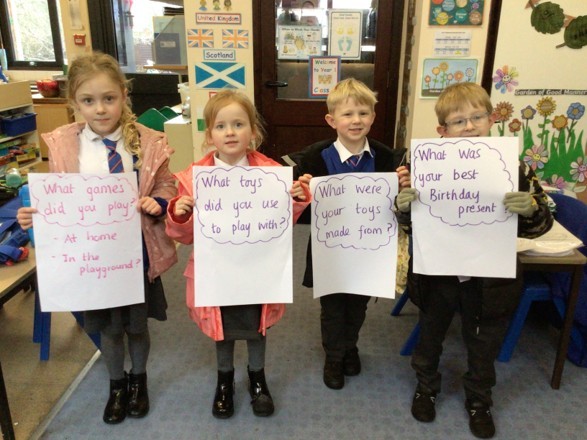 United Kingdom
Scotland
Welcome to
Garden of Good Manners
What games
did you play?
- At home
- In the
playground?
What toys
did you use
to play with?
What were
your toys
made from?
What Was
your best
Birthday
present